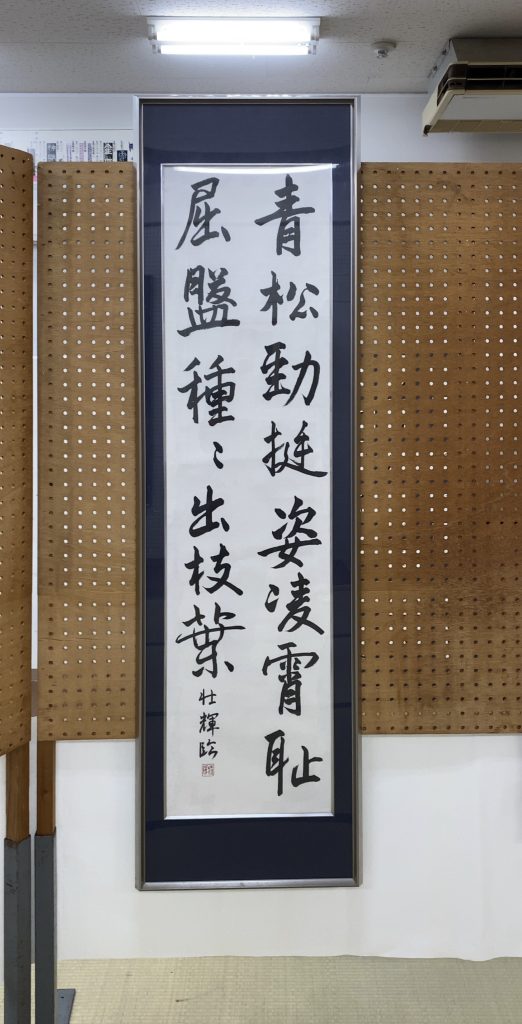 青松勁挺姿凌霄耻
屈盤種〻出枝葉
壮輝臨